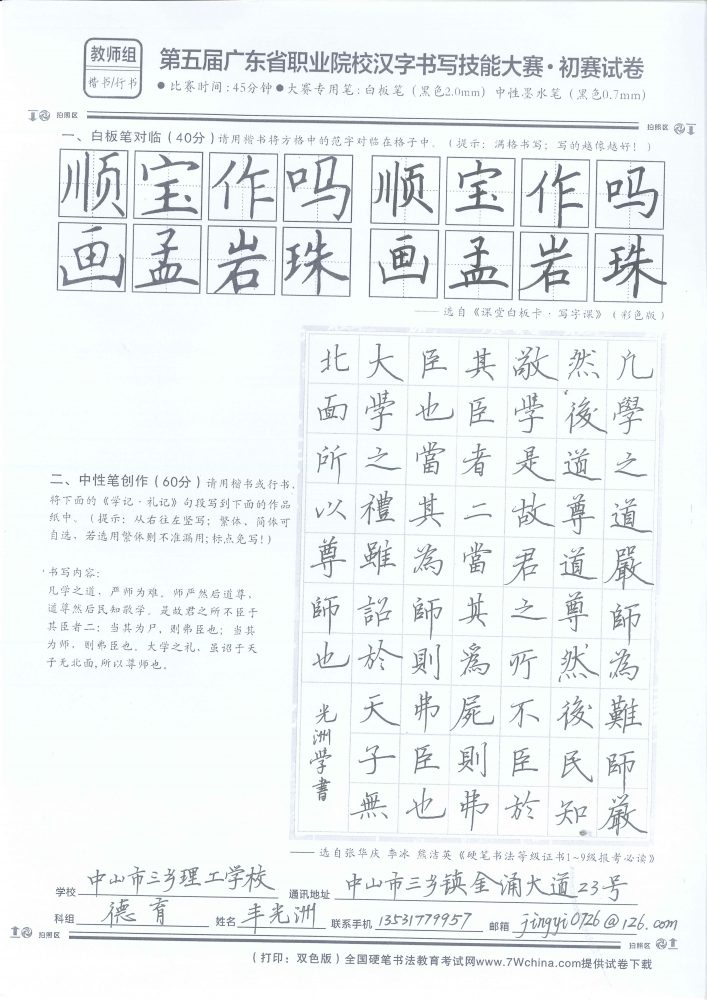 教师组
楷书/行书
第五届广东省职业院校汉字书写技能大赛·初赛试卷
●比赛时间:45分钟●大赛专用笔:白板笔（黑色2.0mm）中性墨水笔（黑色0.7mm）
拍照区
拍照区
一、白板笔对临（40分）请用楷书将方格中的范字对临在格子中。（提示：满格书写；写的越像越好！）
顺宝作吗 顺宝作吗
画孟岩珠 画孟岩珠
——选自《课堂白板卡·写字课》（彩色版）
二、中性笔创作（60分）请用楷书或行书,
将下面的《学记·礼记》句段写到下面的作品
纸中。（提示：从右往左竖写；繁体、简体可
自选，若选用繁体则不准漏用;标点免写!）
书写内容:
凡学之道，严师为难。师严然后道尊，
道尊然后民知敬学。是故君之所不臣于
其臣者二；当其为尸，则弗臣也；当其
为师，则弗臣也。大学之礼、虽诏于天
子无北面,所以尊师也。
凡學之道嚴師為難師嚴
然後道尊道尊然後民知
敬學是故君之所不臣於
其臣者二當其爲屍則弗
臣也當其為師則弗臣也
大學之禮雖詔於天子無
北面所以尊師也
光洲學書
——选自张华庆 李冰 熊洁英《硬笔书法等级证书1~9级报考必读》
学校 中山市三乡理工学校 通讯地址 中山市三乡镇金涌大道23号
科组 德育 姓名 丰光洲 联系手机 13531779957 邮箱 jingyi0726@126.com
拍照区
拍照区
（打印：双色版）全国硬笔书法教育考试网www.7Wchina.com提供试卷下载